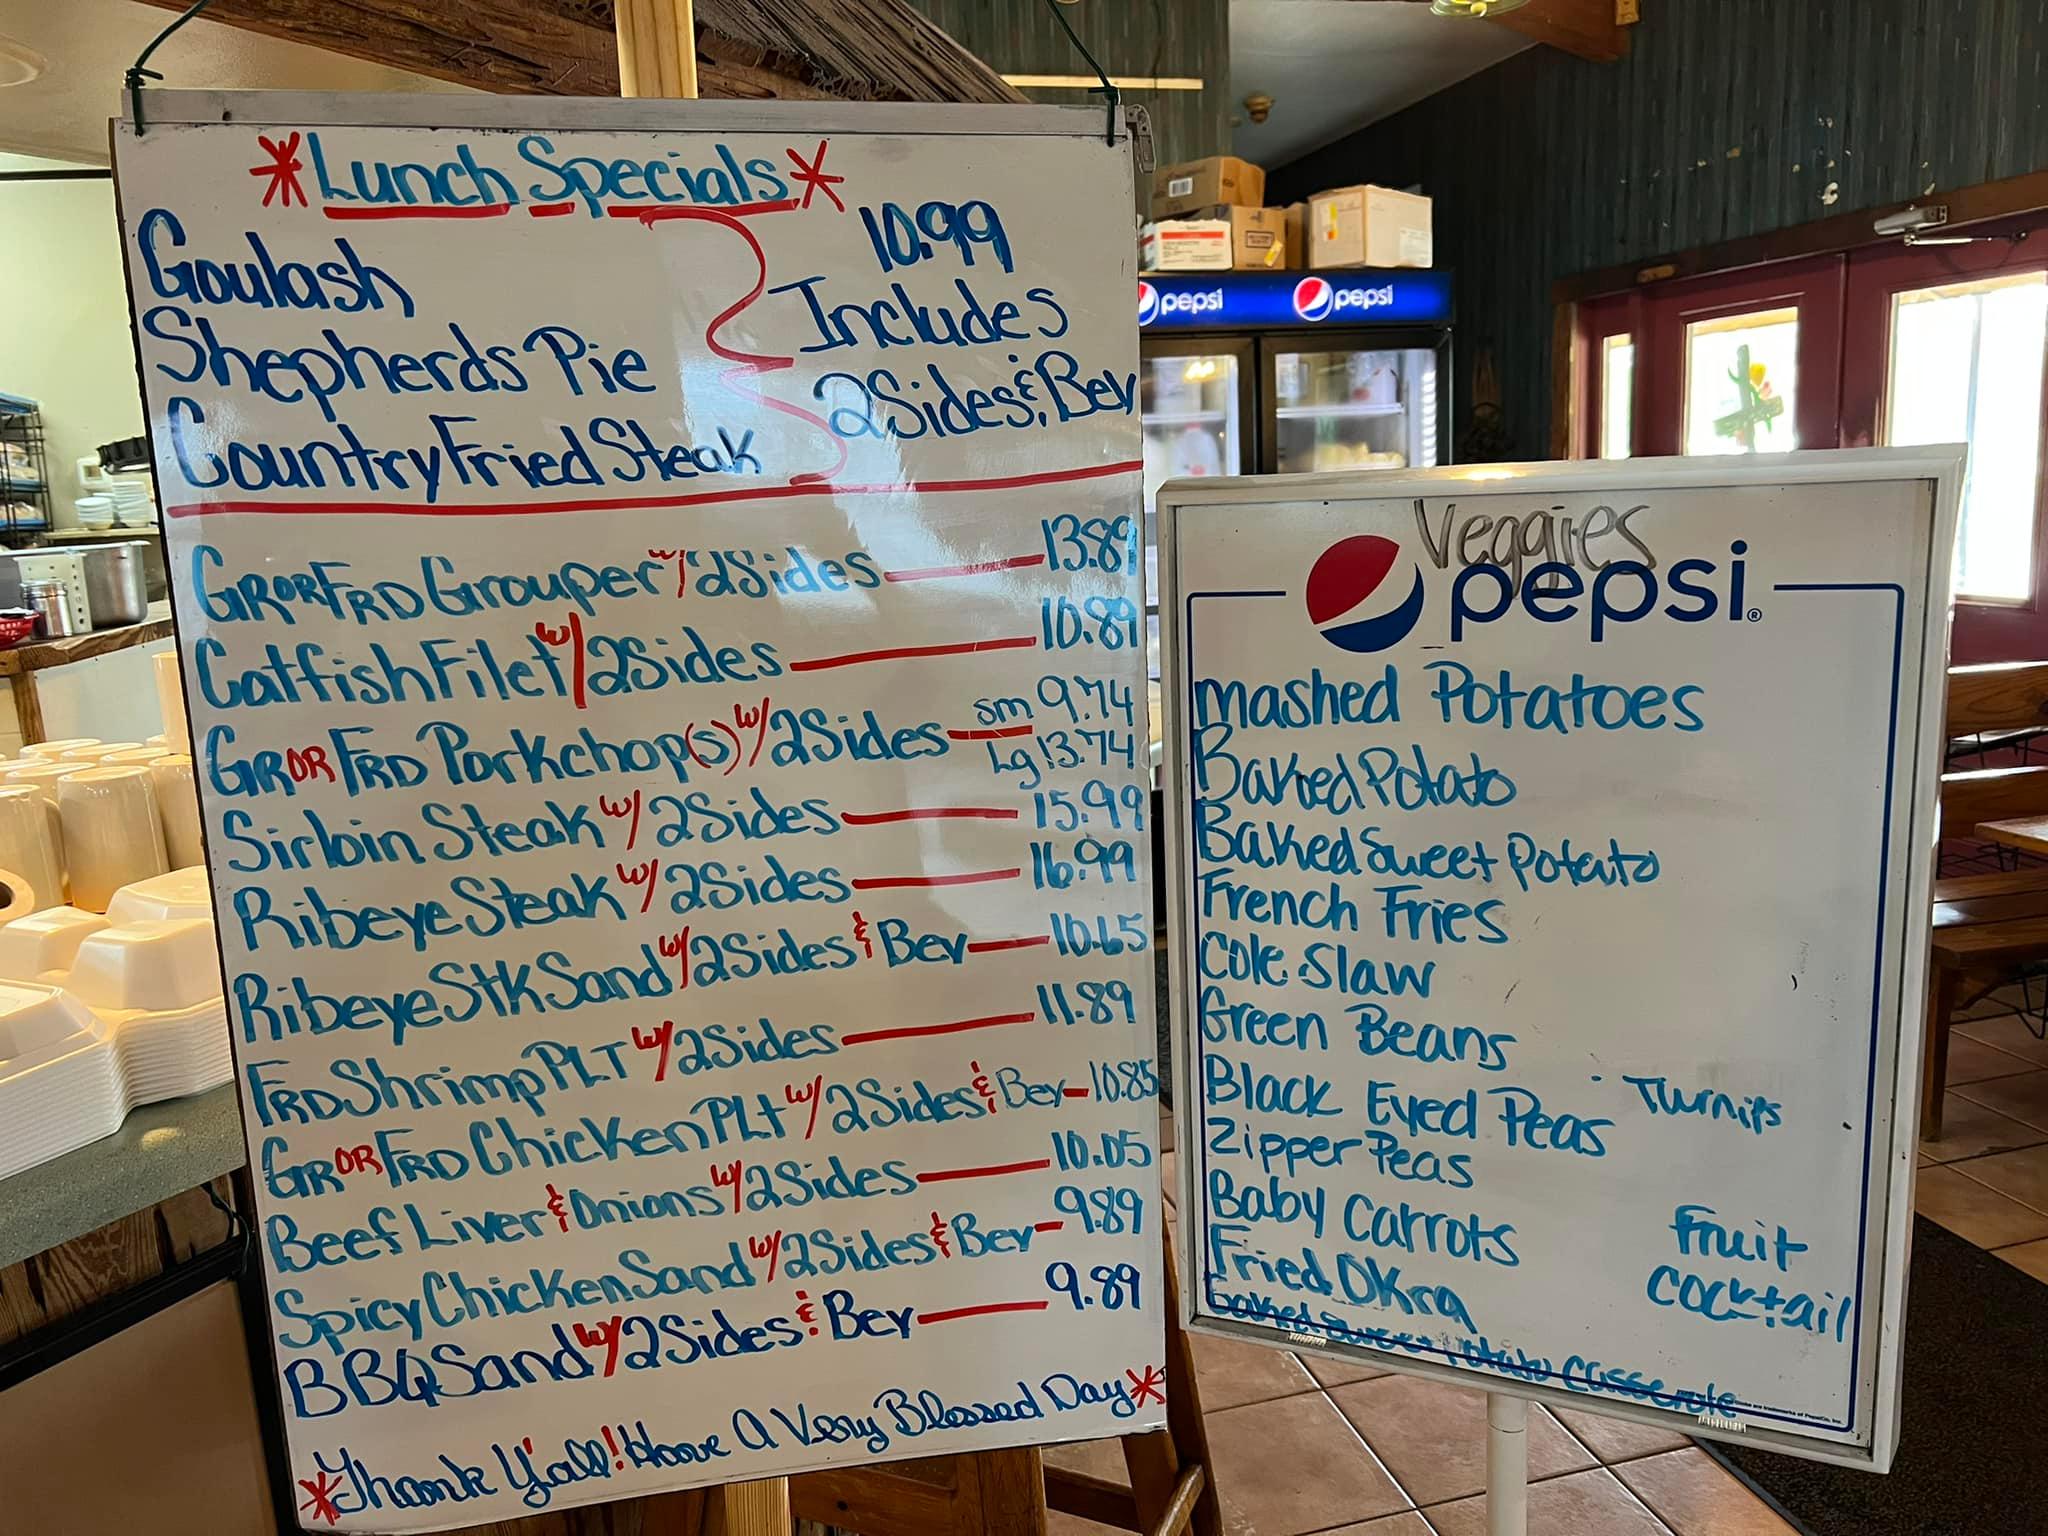 *Lunch Specials*
Goulash
Shepherds Pie
Country Fried Steak
10.99
Includes
2 Sides & Bev
GR OR FRD Grouper w/ 2 Sides 13.89
Catfish Filet w/ 2 Sides 10.89
GR OR FRD Porkchop(s) w/ 2 Sides sm 9.74
Lg 13.74
Sirloin Steak w/ 2 Sides 15.99
Ribeye Steak w/ 2 Sides 16.99
Ribeye Stk Sand w/ 2 Sides & Bev 10.65
FRD Shrimp PLT w/ 2 Sides 11.89
GR OR FRD Chicken PLt w/ 2 Sides & Bev 10.85
Beef Liver & Onions w/ 2 Sides 10.05
Spicy Chicken Sand w/ 2 Sides & Bev 9.89
BBQ Sand w/ 2 Sides & Bev 9.89
*Thank Y'all! Have A Very Blessed Day*
pepsi pepsi
Veggies
pepsi®
Mashed Potatoes
Baked Potato
Baked Sweet Potato
French Fries
Cole Slaw
Green Beans
Black Eyed Peas
Turnips
Zipper Peas
Baby Carrots
Fried Okra
Fruit
Cocktail
Baked Sweet Potato Casserole